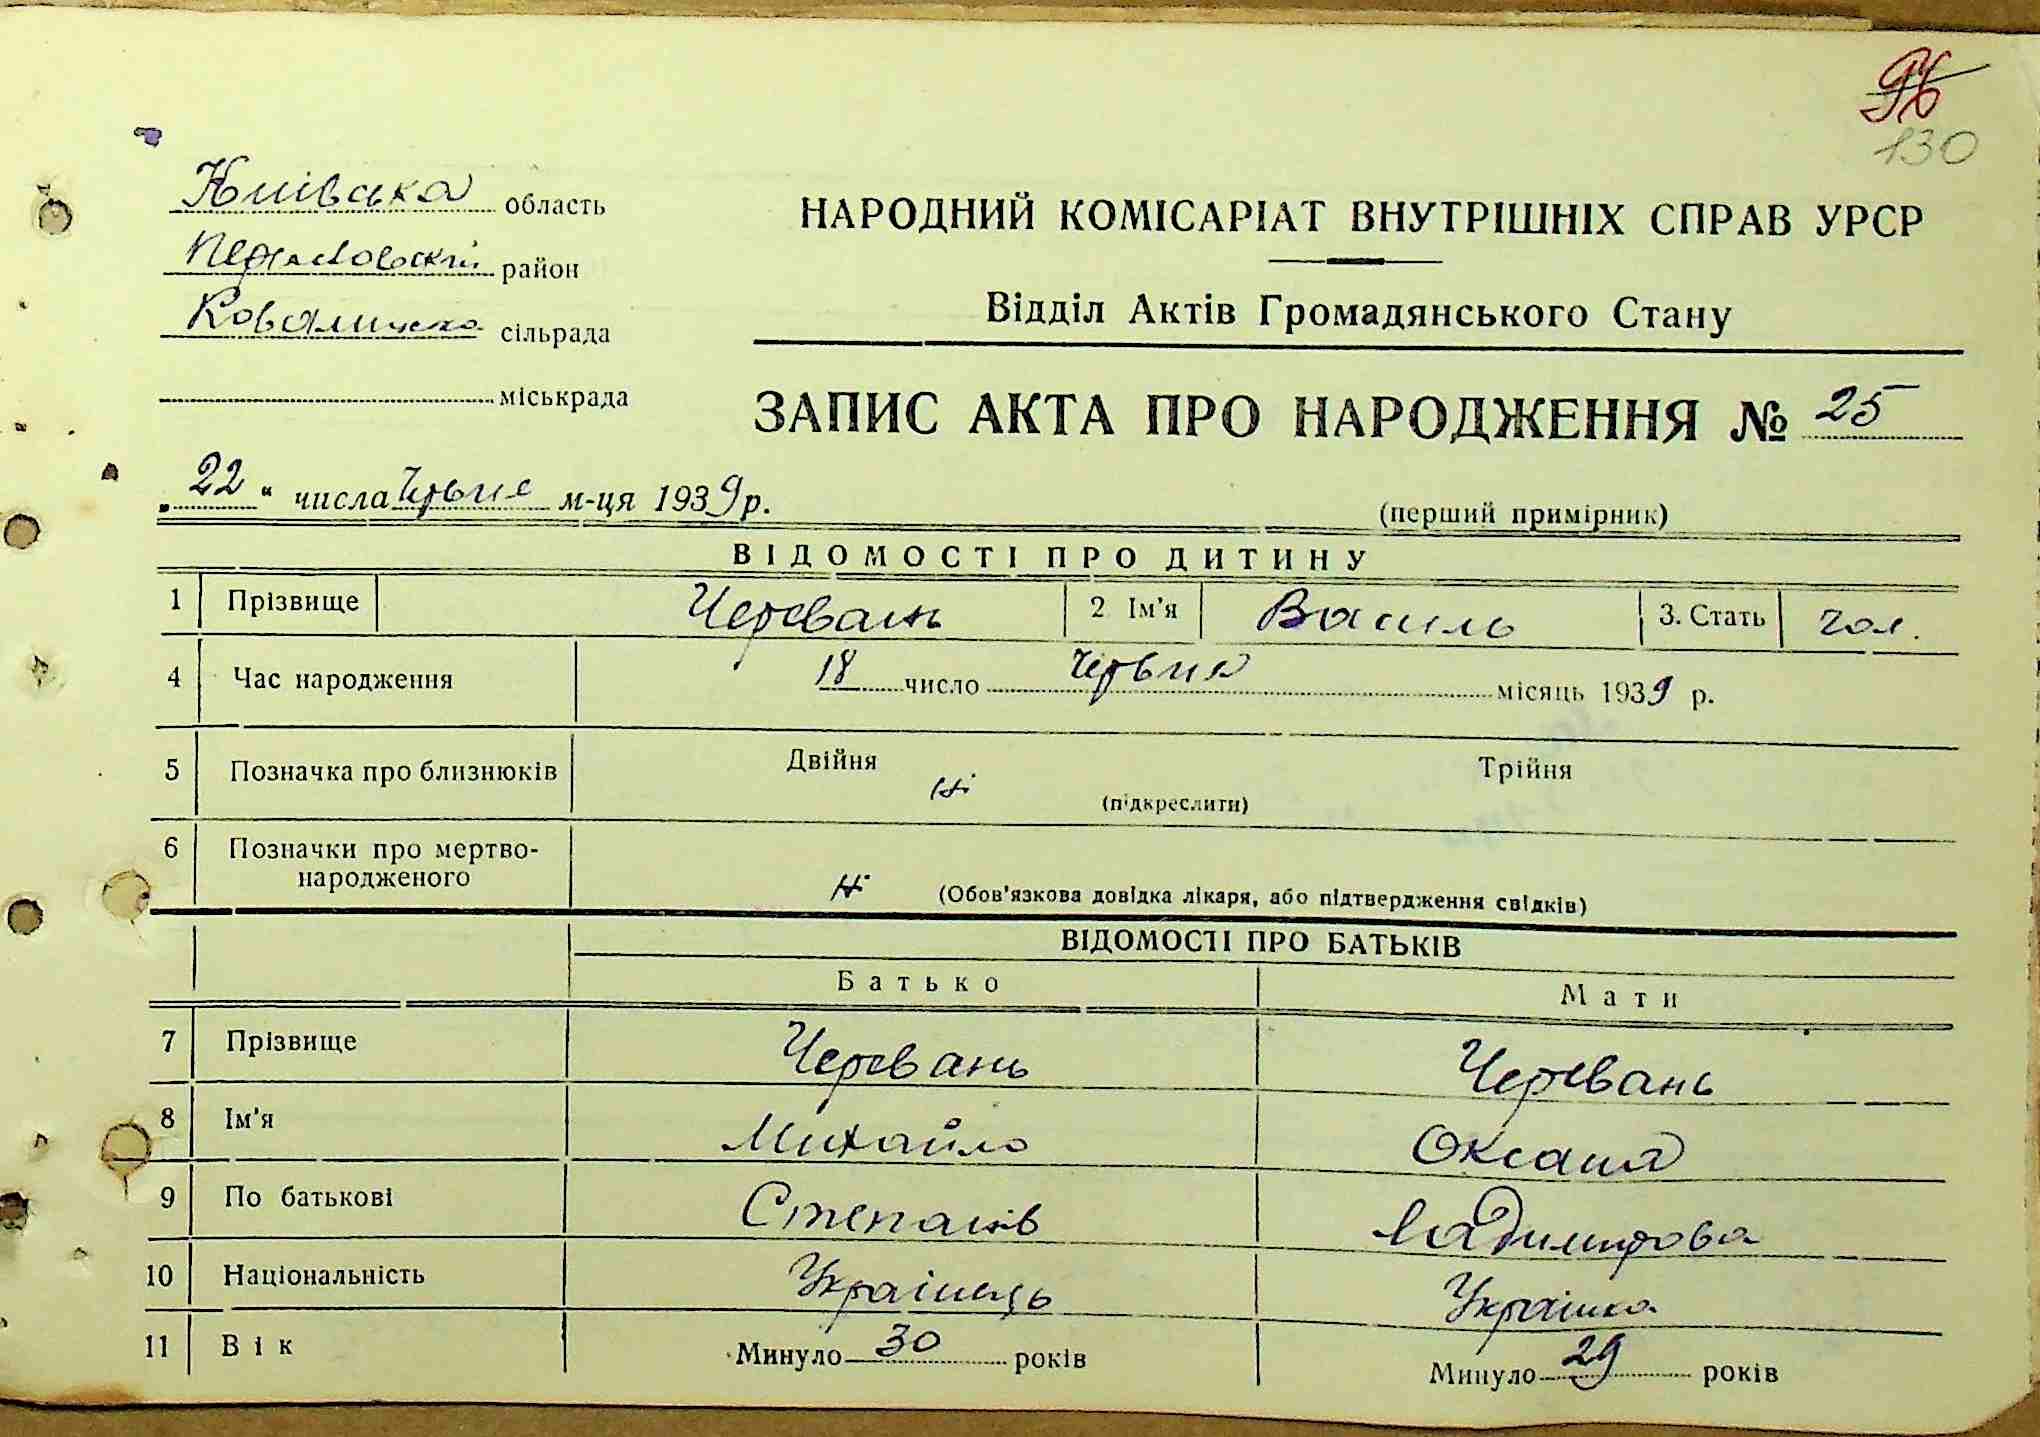 96
130
Київська область
район
сільрада
міськрада
НАРОДНИЙ КОМІСАРІАТ ВНУТРІШНІХ СПРАВ УРСР
Відділ Актів Громадянського Стану
ЗАПИС АКТА ПРО НАРОДЖЕННЯ № 25
„22“ числа Червня м-ця 1939 р.
(перший примірник)
ВІДОМОСТІ ПРО ДИТИНУ
1 Прізвище Черевань 2 Ім'я Василь 3. Стать чол.
4 Час народження 18 число Червня місяць 1939 р.
5 Позначка про близнюків Двійня Ні (підкреслити) Трійня
6 Позначки про мертво-
народженого Ні (Обов'язкова довідка лікаря, або підтвердження свідків)
ВІДОМОСТІ ПРО БАТЬКІВ
Батько Мати
7 Прізвище Черевань Черевань
8 Ім'я Михайло Оксана
9 По батькові Степанів
10 Національність Українець Українка
11 Вік Минуло 30 років Минуло 29 років